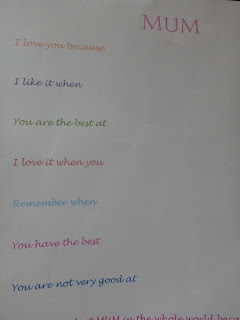 MUM
I love you because
I like it when
You are the best at
I love it when you
Remember when
You have the best
You are not very good at
MUM in the whole world